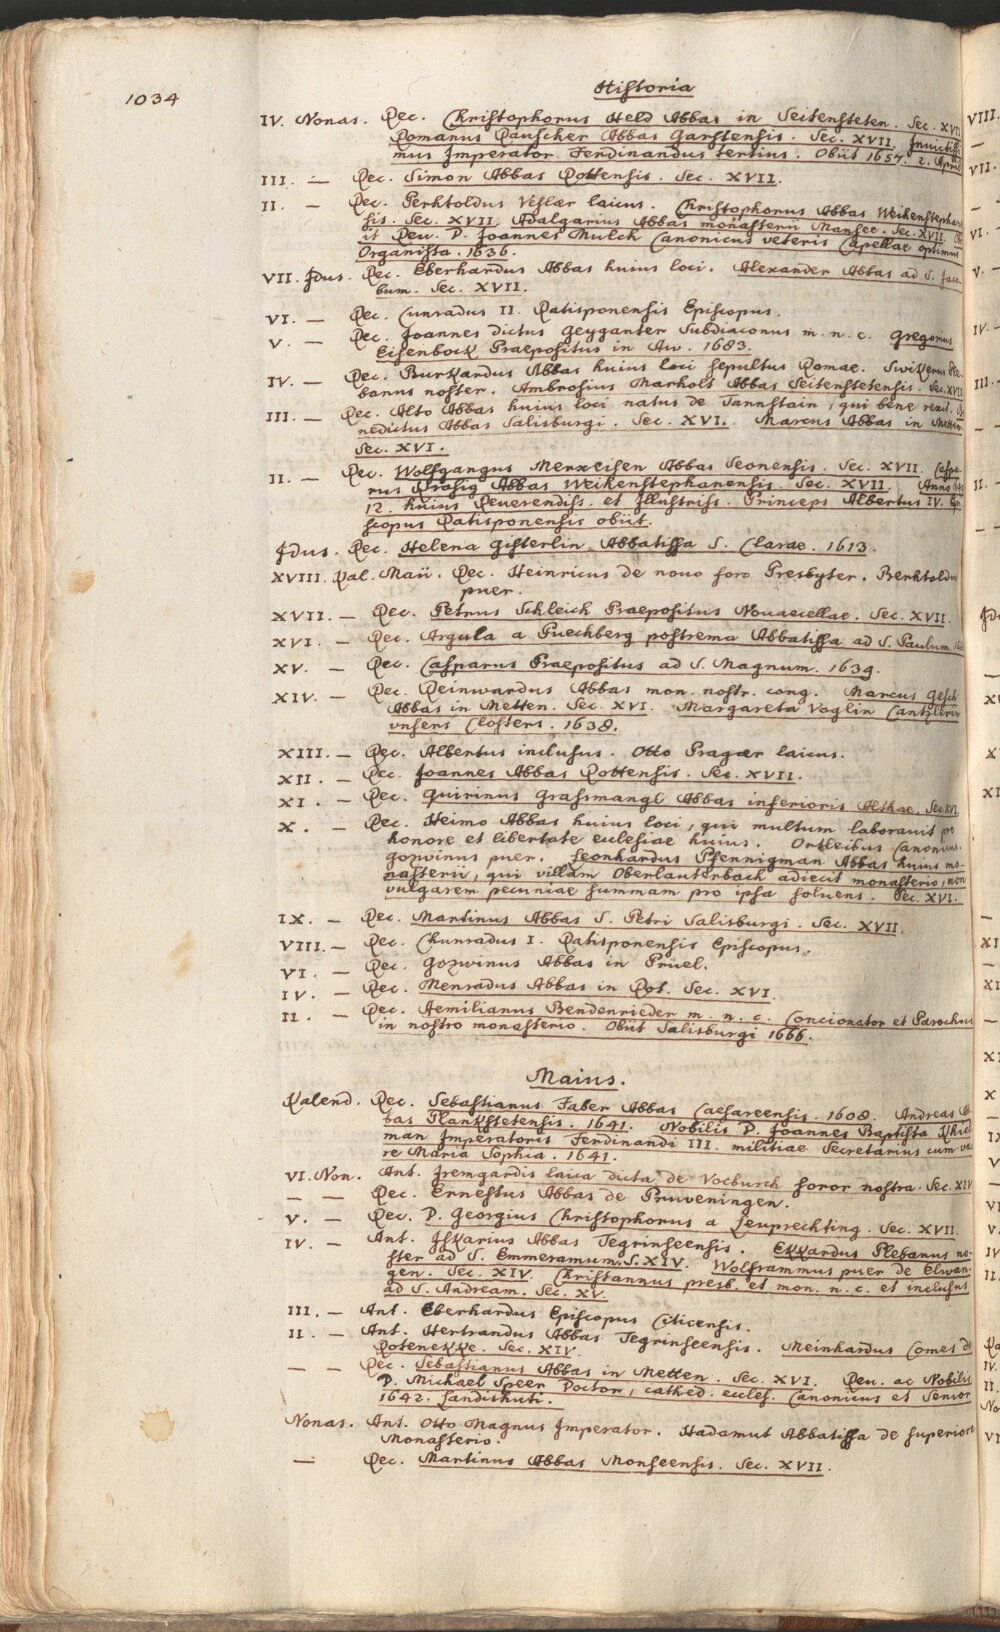 1034
Historia
IV. Nonas. Rec. Christophorus Held Abbas in Seitensteten. Sec. XVII
Romanus Rauscher Abbas Garstensis. Sec. XVII. Invictissi-
mus Imperator Ferdinandus tertius. Obiit 1657. 2. April
III. — Rec. Simon Abbas Rottensis. Sec. XVII.
II. — Rec. Perhtoldus Veslær laicus. Christophorus Abbas Weihenstephanen
sis. Sec. XVII. Adalgarius Abbas monasterii Mansee. Sec. XVII. Ob
iit Reu. D. Joannes Mulck Canonicus veteris Capellae optimus
Organista. 1636.
VII. Idus. Rec. Eberhardus Abbas huius loci. Alexander Abbas ad S. Jaco-
bum. Sec. XVII.
VI. — Rec. Cunradus II. Ratisponensis Episcopus.
V. — Rec. Joannes dictus Geyganter Subdiaconus m. n. c. Gregorius
Eisenbock Praepositus in Au. 1683.
IV. — Rec. Burkardus Abbas huius loci sepultus Romae. Swikerus Ple
banus noster. Ambrosius Marholt Abbas Seitenstetensis. Sec. XVII
III. — Rec. Alto Abbas huius loci natus de Tannstain, qui bene rexit. Be
nedictus Abbas Salisburgi. Sec. XVI. Marcus Abbas in Metten.
Sec. XVI.
II. — Rec. Wolfgangus Merxeisen Abbas Seonensis. Sec. XVII. Caspa-
rus Frasig Abbas Weihenstephanensis. Sec. XVII. Anno
12. huius Reuerendiss. et Illustriss. Princeps Albertus IV. Epi
scopus Ratisponensis obiit.
Idus. Rec. Helena Gisterlin Abbatissa S. Clarae. 1613.
XVIII. Kal. Maii. Rec. Heinricus de nouo foro Presbyter. Berhtoldus
puer.
XVII. — Rec. Petrus Schleich Praepositus Nouaecellae. Sec. XVII.
XVI. — Rec. Argula a Puechberg postrema Abbatissa ad S. Paulum.
XV. — Rec. Casparus Praepositus ad S. Magnum. 1639.
XIV. — Rec. Reinwardus Abbas mon. nostr. cong. Marcus Besch
Abbas in Metten. Sec. XVI. Margareta Voglin Cantzlerin
vnsers Closters. 1638.
XIII. — Rec. Albertus inclusus. Otto Pragær laicus.
XII. — Rec. Joannes Abbas Rottensis. Sec. XVII.
XI. — Rec. Quirinus Grassmangl Abbas inferioris Althae. Sec. XVI.
X. — Rec. Heimo Abbas huius loci, qui multum laborauit pro
honore et libertate ecclesiae huius. Ortleibus Canonicus.
Gozwinus puer. Leonhardus Pfennigman Abbas huius mo-
nasterii, qui villam Oberlauterbach adiecit monasterio, non
vulgarem pecuniae summam pro ipsa soluens. Sec. XVI.
IX. — Rec. Martinus Abbas S. Petri Salisburgi. Sec. XVII.
VIII. — Rec. Chunradus I. Ratisponensis Episcopus.
VI. — Rec. Gozwinus Abbas in Prüel.
IV. — Rec. Menradus Abbas in Rot. Sec. XVI.
II. — Rec. Aemilianus Bendenrieder m. n. c. Concionator et Parochus
in nostro monasterio. Obiit Salisburgi 1666.
Maius.
Kalend. Rec. Sebastianus Faber Abbas Caesareensis. 1608. Andreas Ab
bas Plankstetensis. 1641. Nobilis D. Joannes Baptista
man Imperatoris Ferdinandi III. militiae Secretarius cum vxo
re Maria Sophia. 1641.
VI. Non. Ant. Iremgardis laica dicta de Vocburch soror nostra. Sec. XIV
— — Rec. Ernestus Abbas de Pruveningen.
V. — Rec. D. Georgius Christophorus a Leuprechting. Sec. XVII.
IV. — Ant. Iskarius Abbas Tegrinseensis. Ekkardus Plebanus no-
ster ad S. Emmeramum. S. XIV. Wolframmus puer de Elwan-
gen. Sec. XIV. Christannus presb. et mon. n. c. et inclusus
ad S. Andream. Sec. XV.
III. — Ant. Eberhardus Episcopus Citicensis.
II. — Ant. Hertrandus Abbas Tegrinseensis. Meinhardus Comes de
Rotenekke. Sec. XIV.
— — Rec. Sebastianus Abbas in Metten. Sec. XVI. Reu. ac Nobilis
D. Michael Speer Doctor, cathed. eccles. Canonicus et Senior
1642. Landishuti.
Nonas. Ant. Otto Magnus Imperator. Hadamut Abbatissa de superiore
Monasterio.
— Rec. Martinus Abbas Monseensis. Sec. XVII.